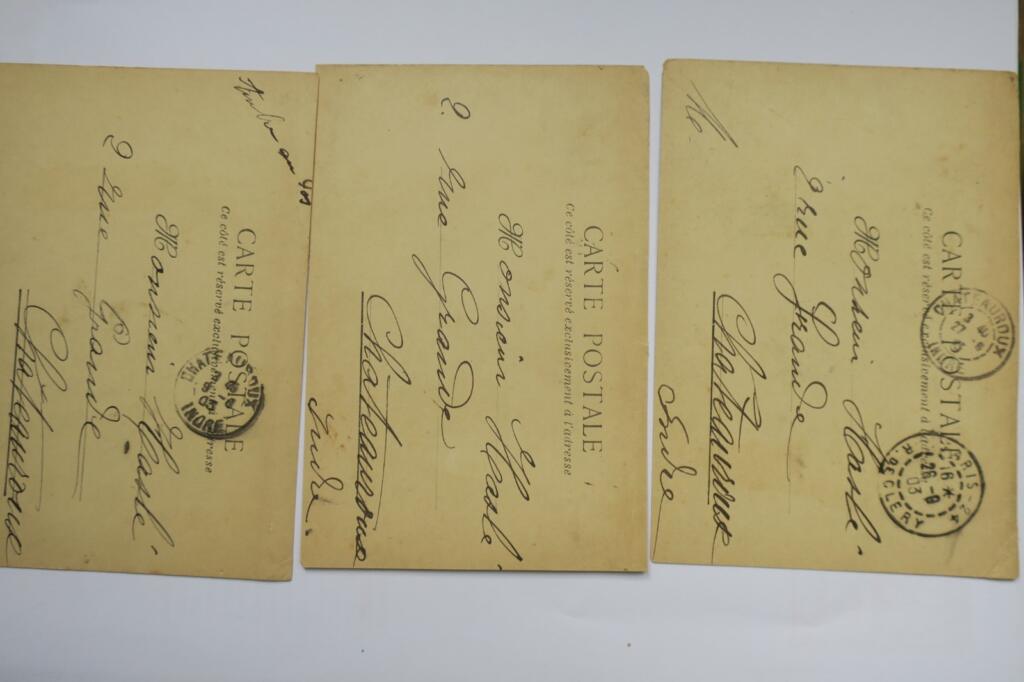 CARTE POSTALE
Ce côté est réservé exclusivement à l'adresse
Monsieur Hasle
2 Rue Grande
Chateauroux
CHATEAUROUX
INDRE
CARTE POSTALE
Ce côté est réservé exclusivement à l'adresse
Monsieur Hasle
2. Rue Grande
Chateauroux
Indre.
CARTE POSTALE
Ce côté est réservé exclusivement à
Monsieur Hasle.
2 rue Grande
Chateauroux
Indre
PARIS
16*
26-9
03
R. DE CLERY